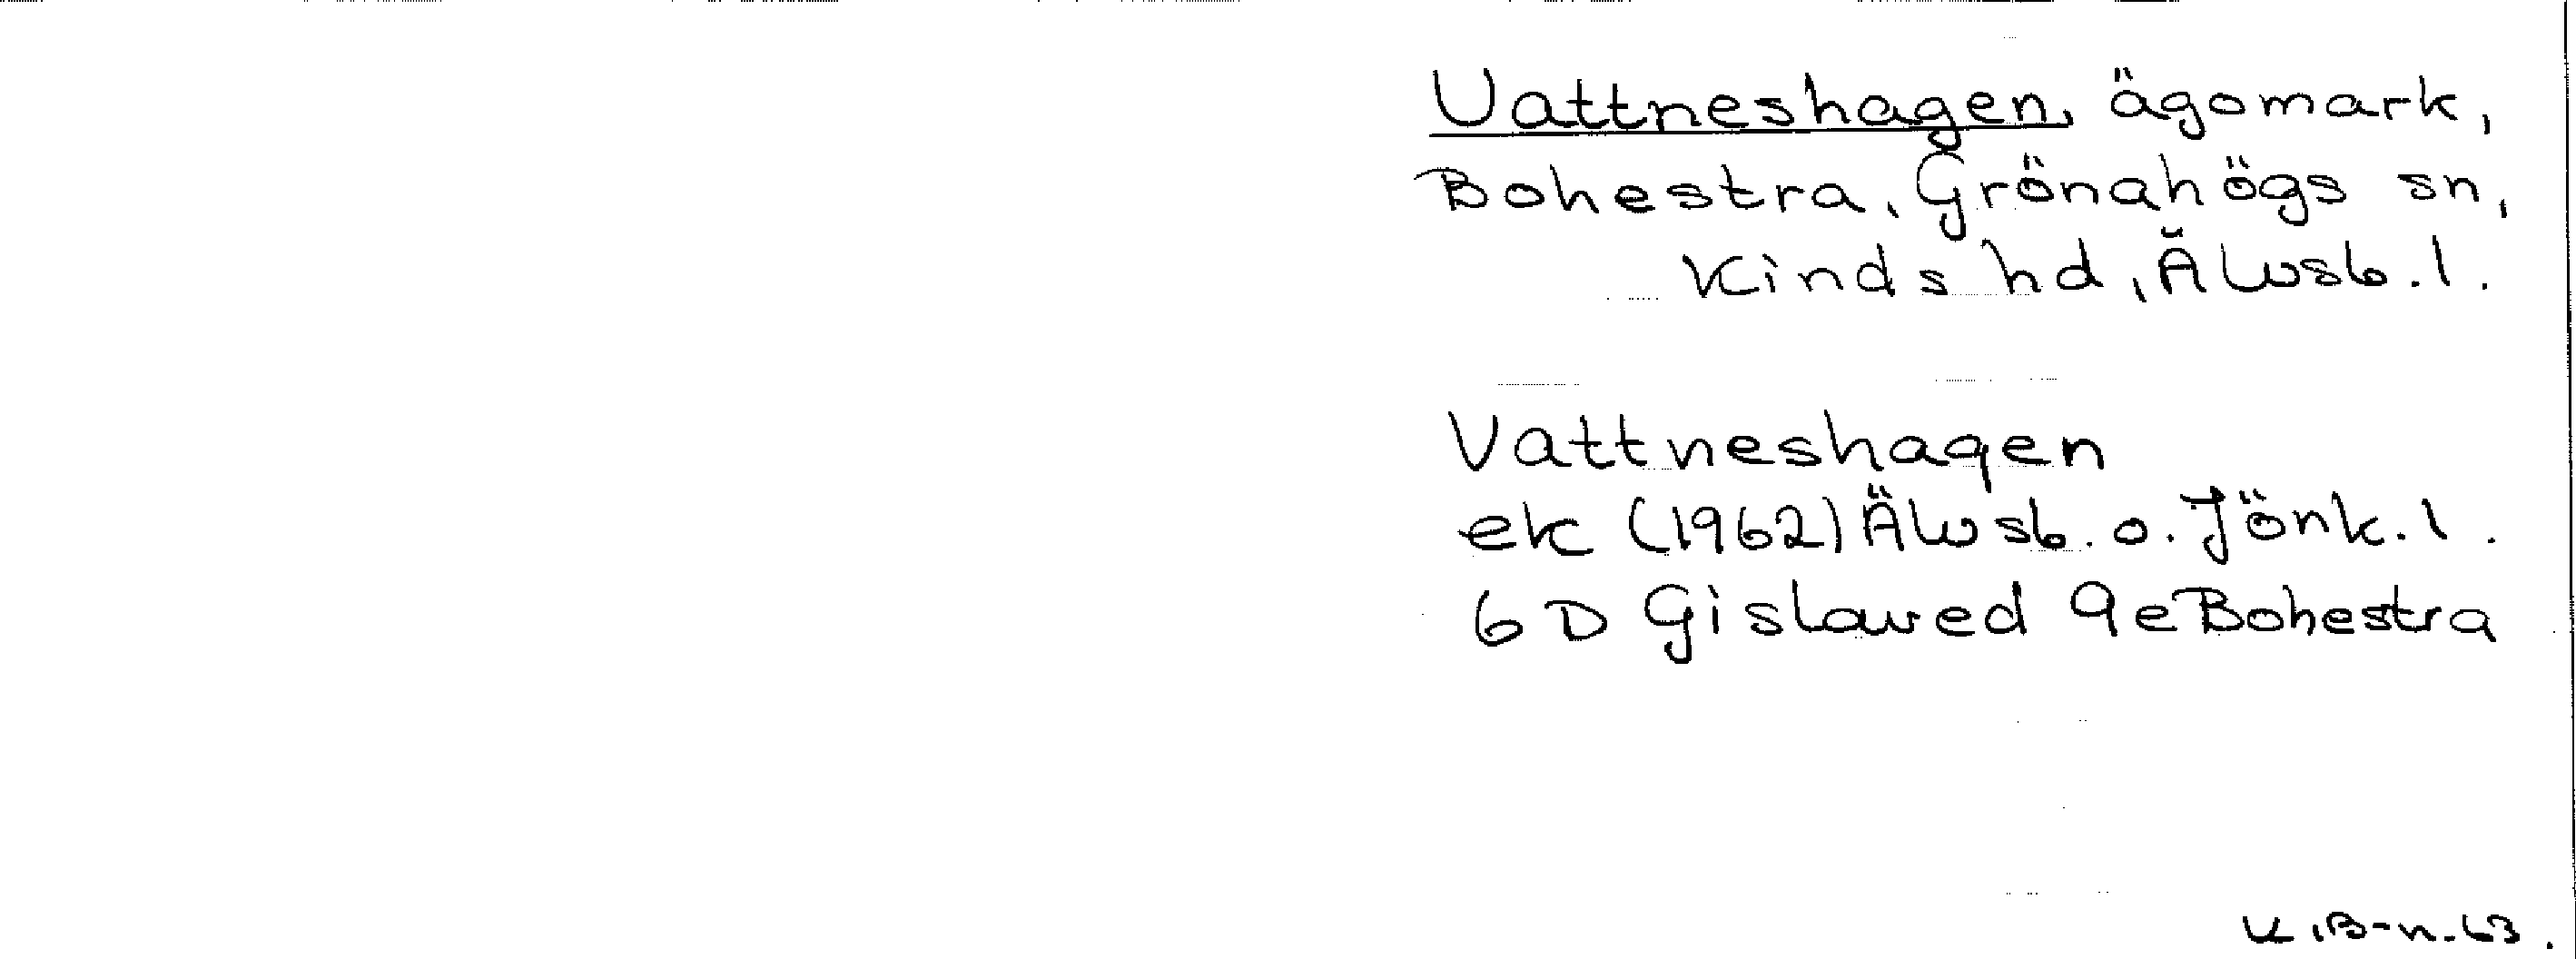 Vattneshagen, ägomark,
Bohestra, Grönahögs sn,
Kinds hd, Älvsb. l.
Vattneshagen
ek (1962) Älvsb. o. Jönk. l.
6 D Gislaved 9e Bohestra
K.B-n-63.